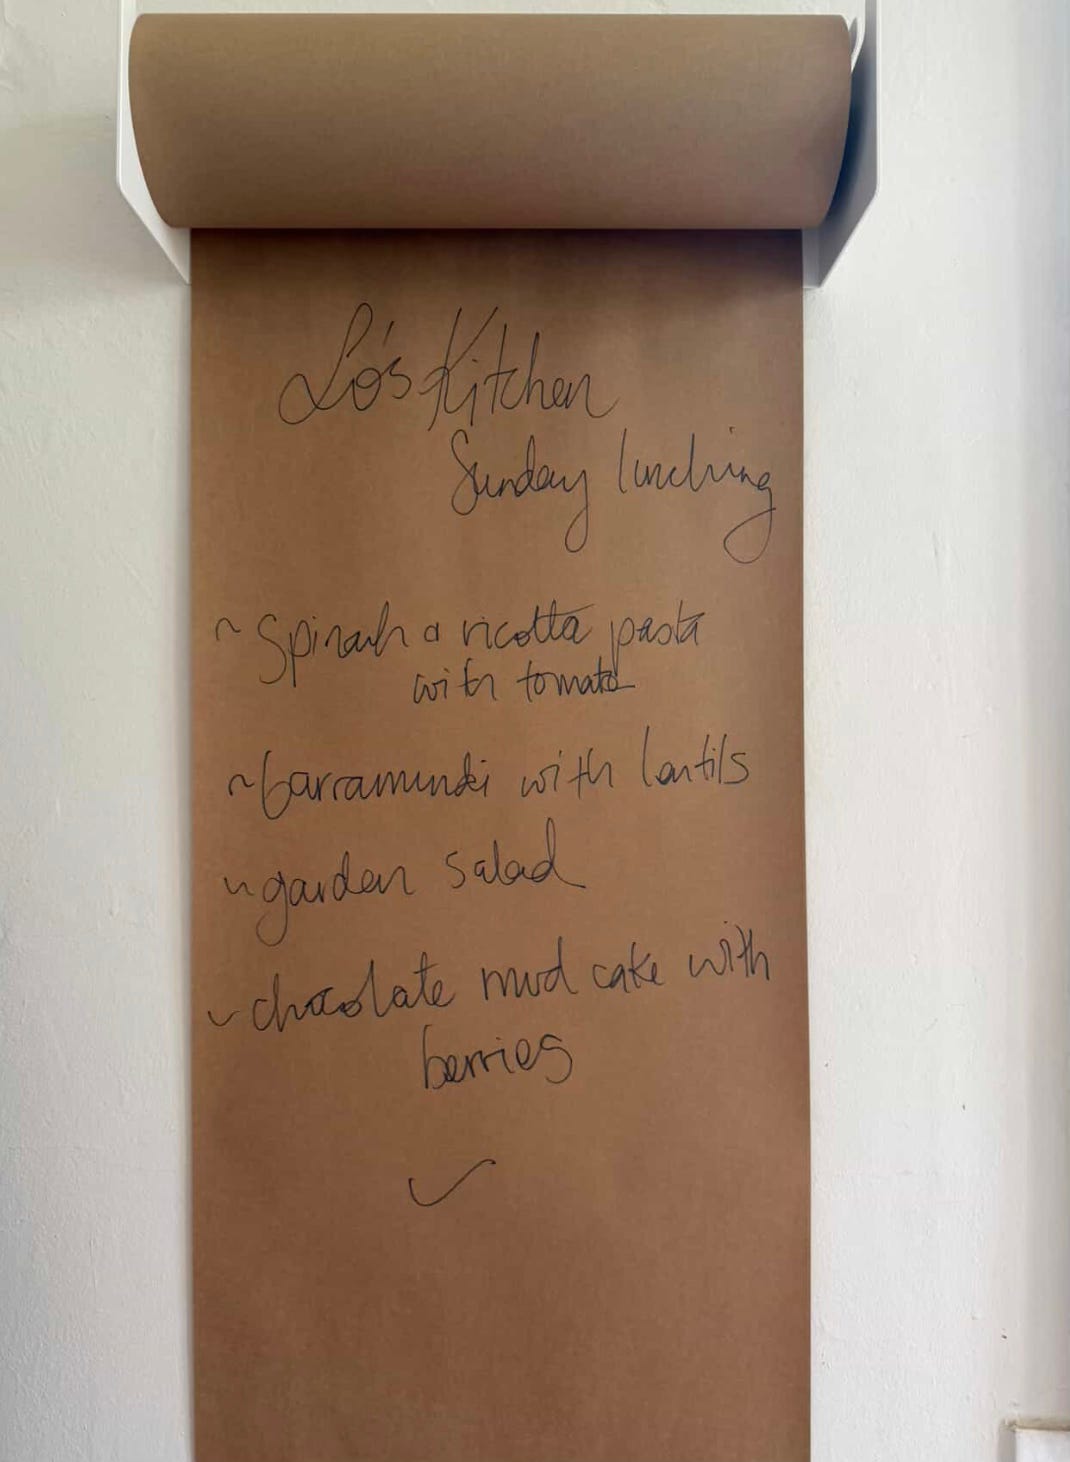 Lo's Kitchen
Sunday lunching
~ Spinach & ricotta pasta
with tomato
~ barramundi with lentils
~ garden salad
~ chocolate mud cake with
berries